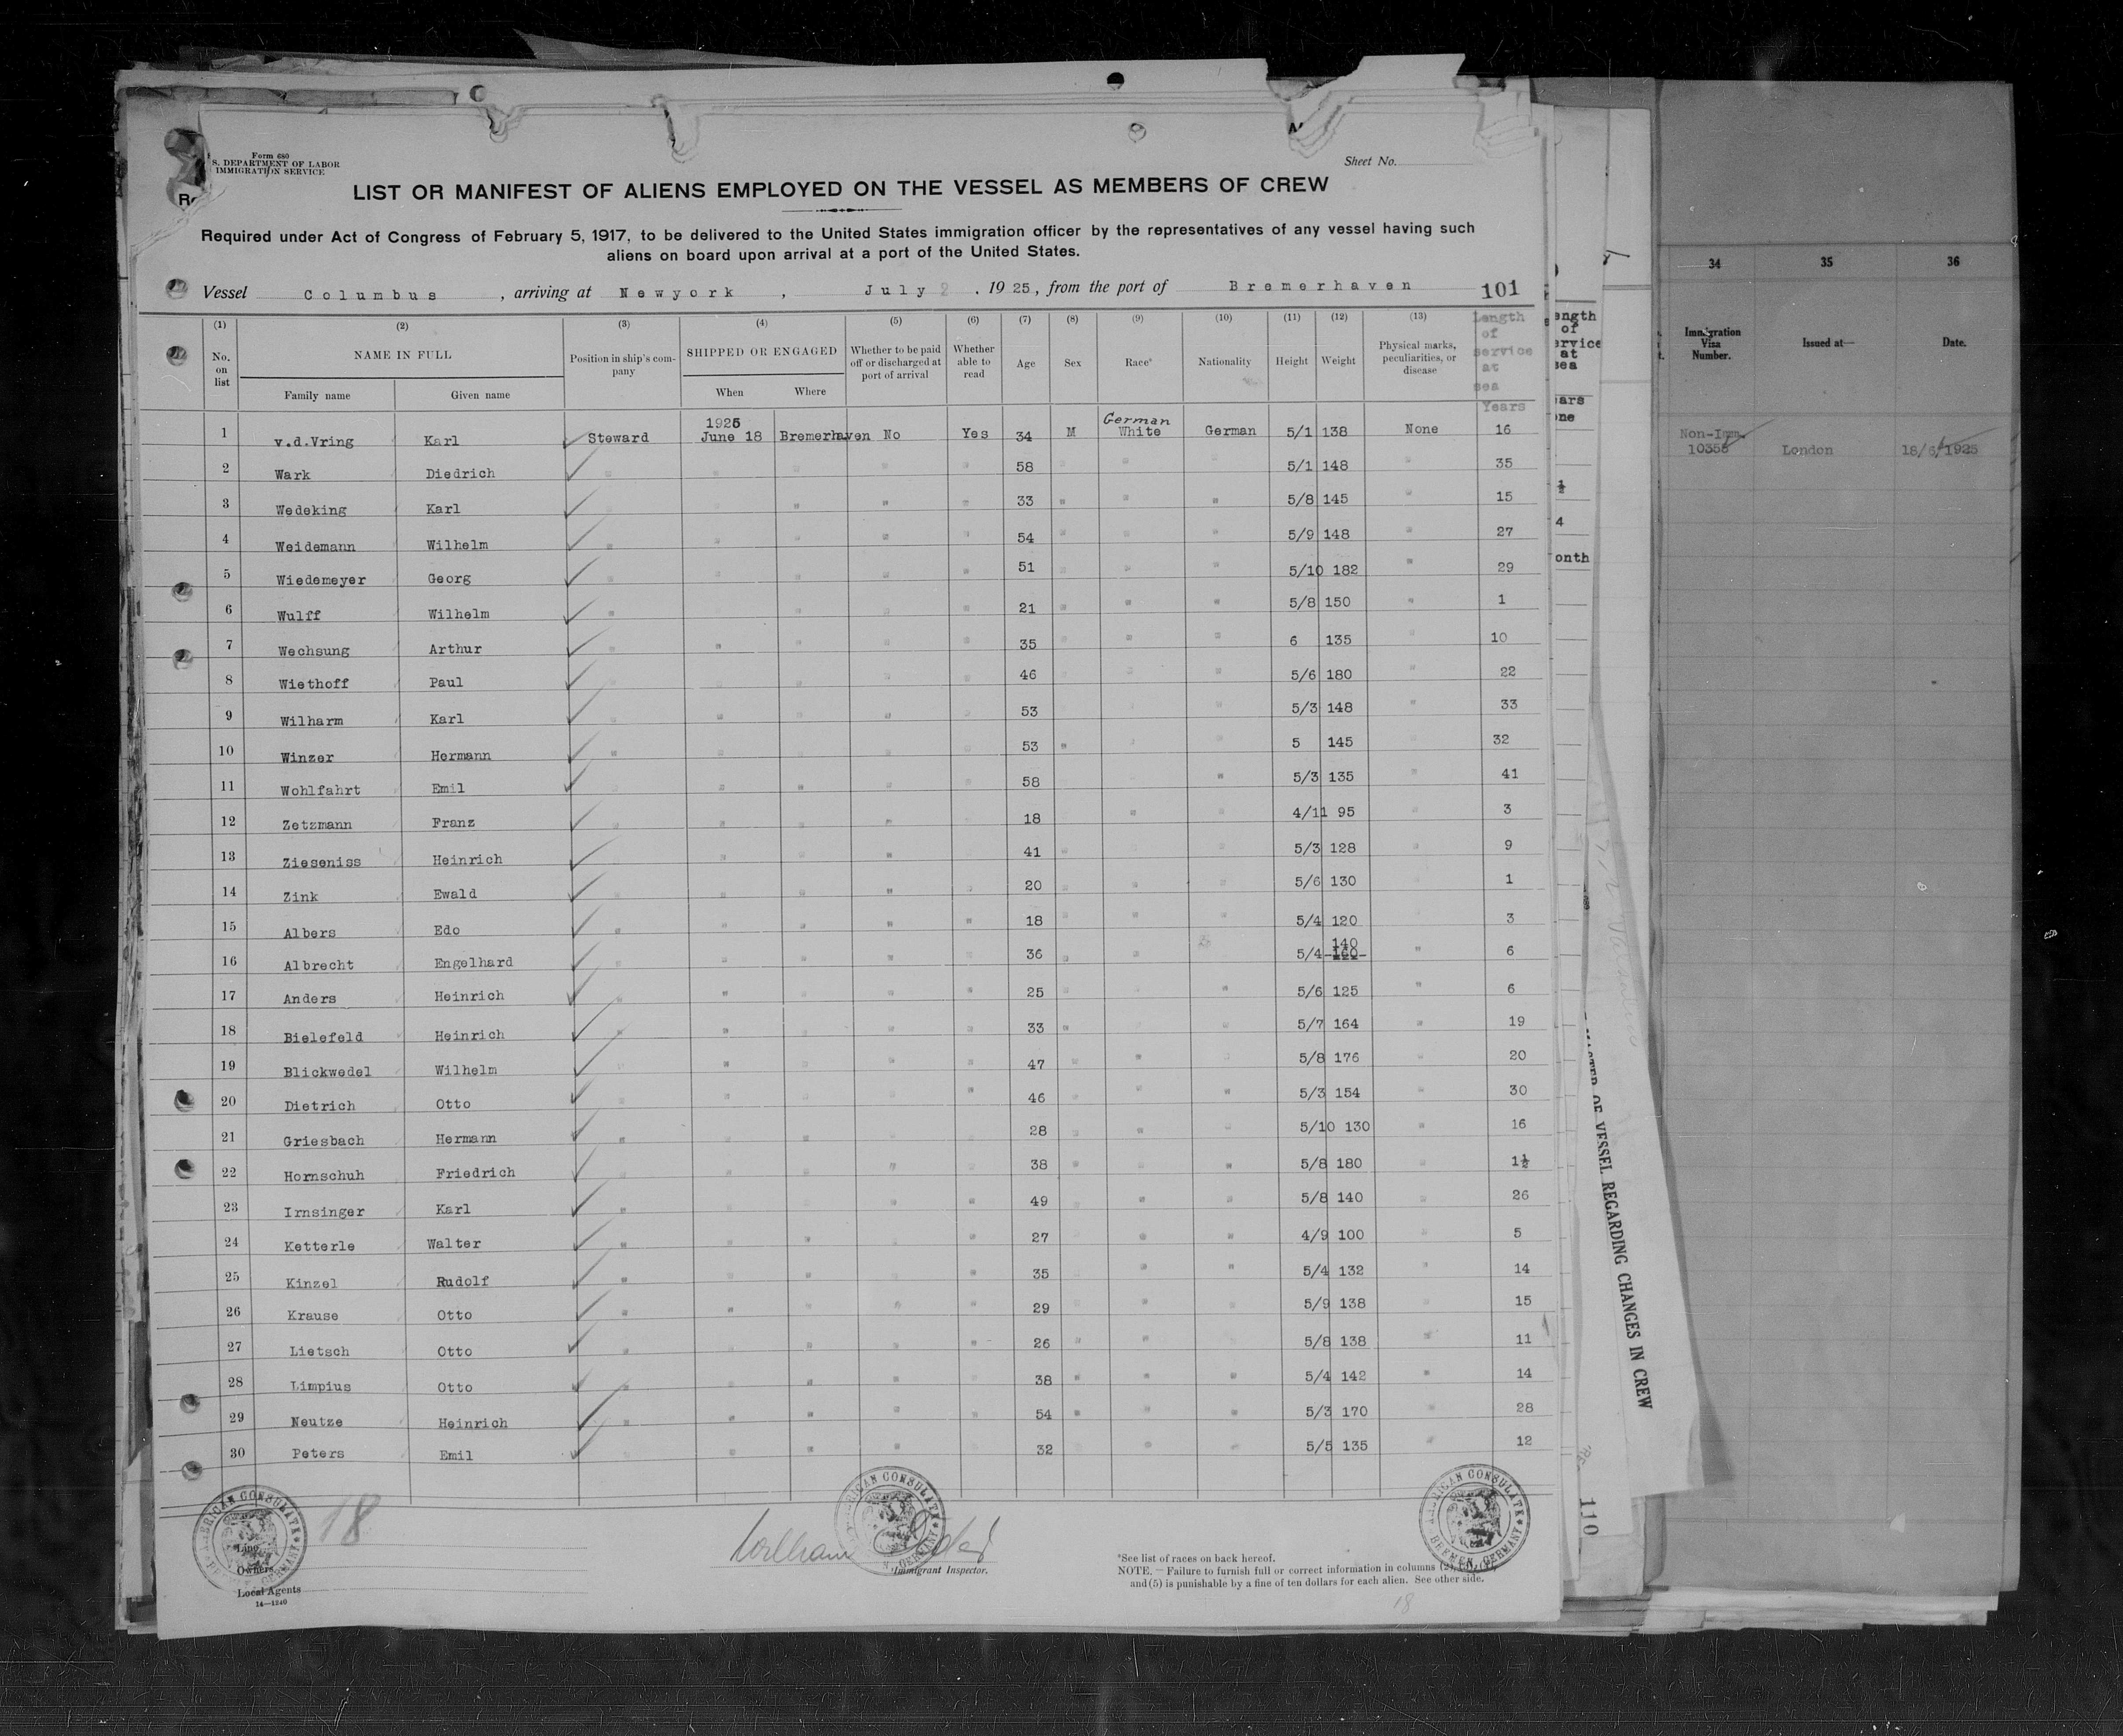 Form 680
S. DEPARTMENT OF LABOR
IMMIGRATION SERVICE
Sheet No.
LIST OR MANIFEST OF ALIENS EMPLOYED ON THE VESSEL AS MEMBERS OF CREW
Required under Act of Congress of February 5, 1917, to be delivered to the United States immigration officer by the representatives of any vessel having such
aliens on board upon arrival at a port of the United States.
Vessel Columbus, arriving at Newyork, July 2, 1925, from the port of Bremerhaven 101
(1) (2) (3) (4) (5) (6) (7) (8) (9) (10) (11) (12) (13)
No. on list NAME IN FULL Position in ship's company SHIPPED OR ENGAGED Whether to be paid off or discharged at port of arrival Whether able to read Age Sex Race* Nationality Height Weight Physical marks, peculiarities, or disease Length of service at sea
Family name Given name When Where Years
1 v.d.Vring Karl Steward 1925 June 18 Bremerhaven No Yes 34 M German White German 5/1 138 None 16
2 Wark Diedrich 58 5/1 148 " 35
3 Wedeking Karl " " 33 " " " 5/8 145 " 15
4 Weidemann Wilhelm " " " " 54 " " 5/9 148 " 27
5 Wiedemeyer Georg " " " " " 51 " " " 5/10 182 " 29
6 Wulff Wilhelm " " " " 21 " " " 5/8 150 " 1
7 Wechsung Arthur " " " " " 35 " " " 6 135 " 10
8 Wiethoff Paul " " " " " 46 " " " 5/6 180 " 22
9 Wilharm Karl " " " " " 53 " 5/3 148 " 33
10 Winzer Hermann " " " " " 53 " " " 5 145 " 32
11 Wohlfahrt Emil " " " " " 58 " 5/3 135 " 41
12 Zetzmann Franz " " " " 18 " " 4/11 95 " 3
13 Zieseniss Heinrich " " " " 41 " " 5/3 128 " 9
14 Zink Ewald " " " " " 20 " " " 5/6 130 1
15 Albers Edo " " " " " 18 " " " 5/4 120 3
16 Albrecht Engelhard " " " " " 36 " " 5/4 160 140 " 6
17 Anders Heinrich " " " " " 25 " " 5/6 125 " 6
18 Bielefeld Heinrich " " " " " 33 " " 5/7 164 " 19
19 Blickwedel Wilhelm " " " " " 47 " " " 5/8 176 " 20
20 Dietrich Otto " " " " 46 " " " 5/3 154 " 30
21 Griesbach Hermann " " " 28 " " " 5/10 130 " 16
22 Hornschuh Friedrich " " " " " 38 " " " 5/8 180 " 1½
23 Irnsinger Karl " " " " " 49 " " " 5/8 140 " 26
24 Ketterle Walter " " " " 27 " " 5/4/9 100 " 5
25 Kinzel Rudolf " " " " 35 " " " 5/4 132 " 14
26 Krause Otto " " " " " 29 " " " 5/9 138 " 15
27 Lietsch Otto " " " " " 26 " " 5/8 138 " 11
28 Limpius Otto " " " " " 38 " " " 5/4 142 " 14
29 Neutze Heinrich " " " " " 54 " " " 5/3 170 " 28
30 Peters Emil " " " 32 " " 5/5 135 " 12
18
AMERICAN CONSULATE
Line
Owners
Local Agents
14—1240
AMERICAN CONSULATE
GERMANY
Immigrant Inspector.
AMERICAN CONSULATE
BREMEN, GERMANY
*See list of races on back hereof.
NOTE.—Failure to furnish full or correct information in columns (2), (3), (4),
and (5) is punishable by a fine of ten dollars for each alien. See other side.
18
ength
of
ervice
at
sea
ears
one
½
4
onth
MASTER OF VESSEL REGARDING CHANGES IN CREW
110
34 35 36
Immigration Visa Number. Issued at— Date.
Non-Imm. 10358 London 18/6/1925